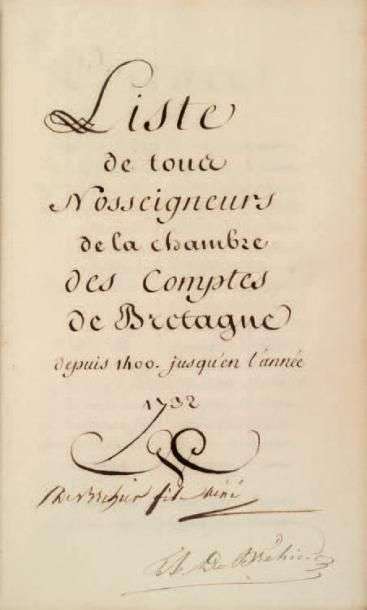 Liste
de tous
Nosseigneurs
de la chambre
des Comptes
de Bretagne
depuis 1400. jusqu'en l'année
1732
fils ainé
De